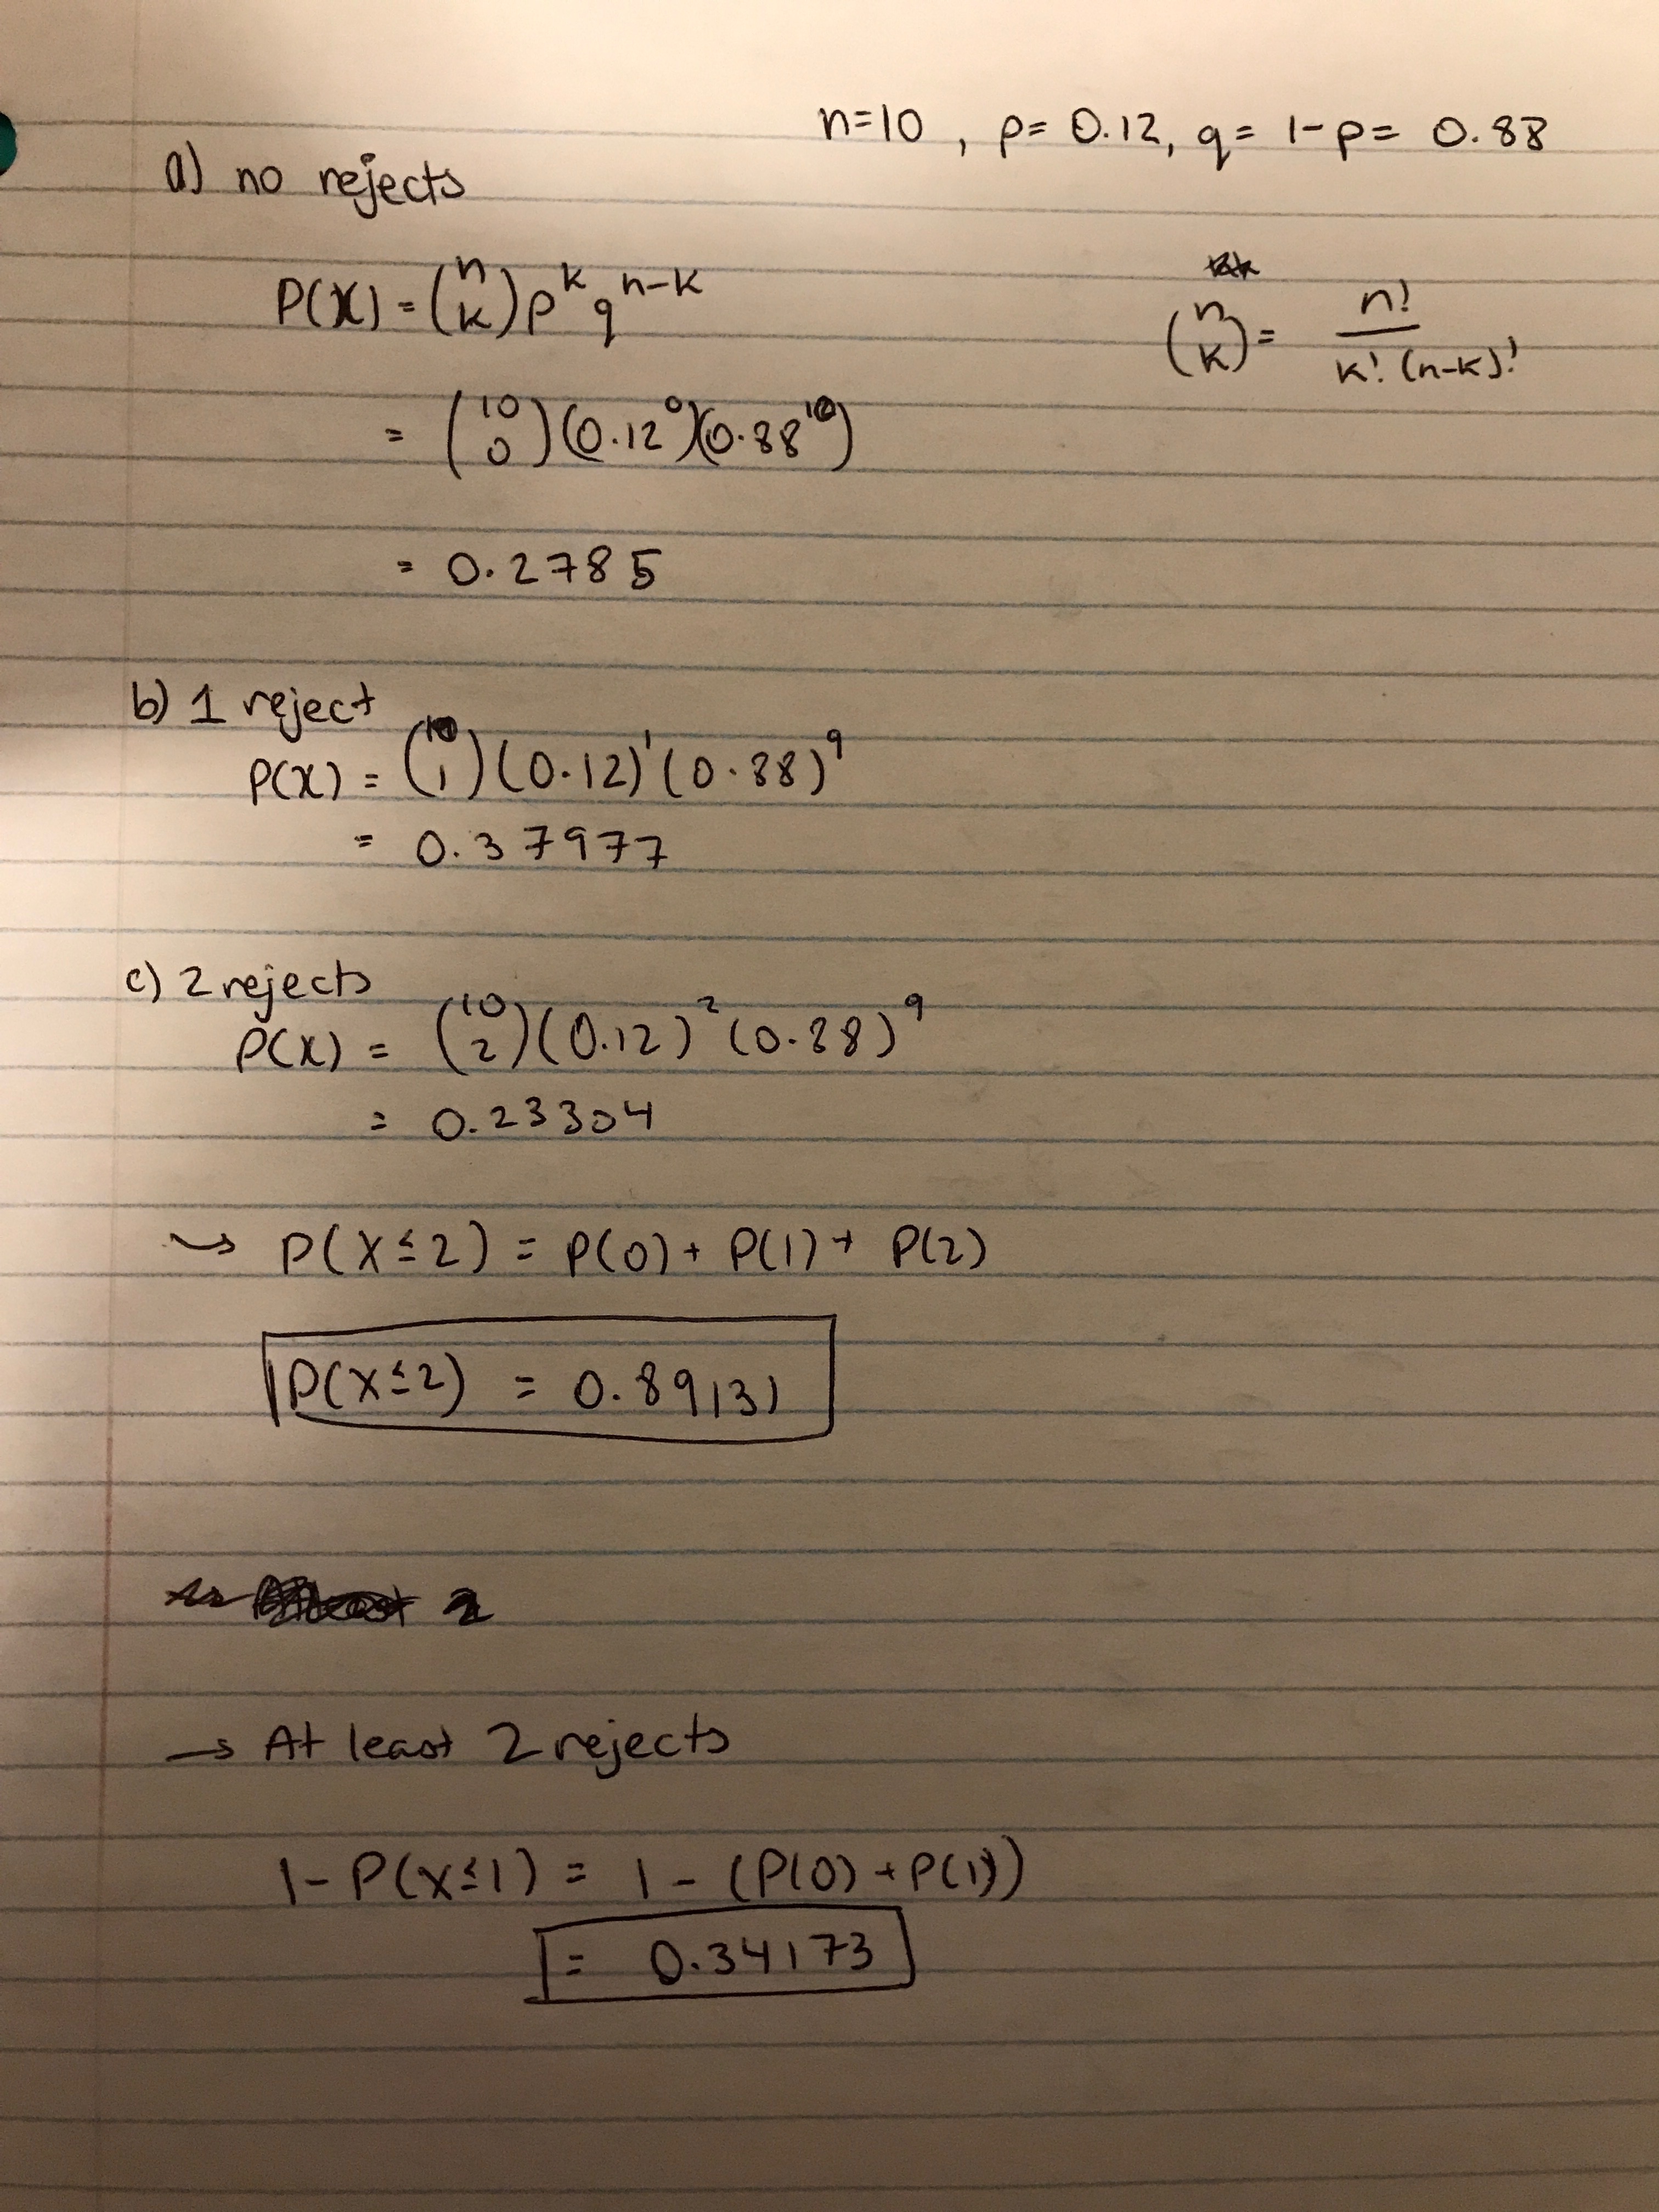 n=10 , p= 0.12, q= 1-p= 0.88
a) no rejects
P(X) = (n k) p^k q^n-k
(n k) = n! / k! (n-k)!
= (10 0)(0.12^0)(0.88^10)
= 0.2785
b) 1 reject
P(X) = (10 1)(0.12)^1(0.88)^9
= 0.37977
c) 2 rejects
P(X) = (10 2)(0.12)^2(0.88)^9
= 0.23304
→ P(X≤2) = P(0) + P(1) + P(2)
P(X≤2) = 0.89131
→ At least 2 rejects
1-P(X≤1) = 1 - (P(0) + P(1))
= 0.34173